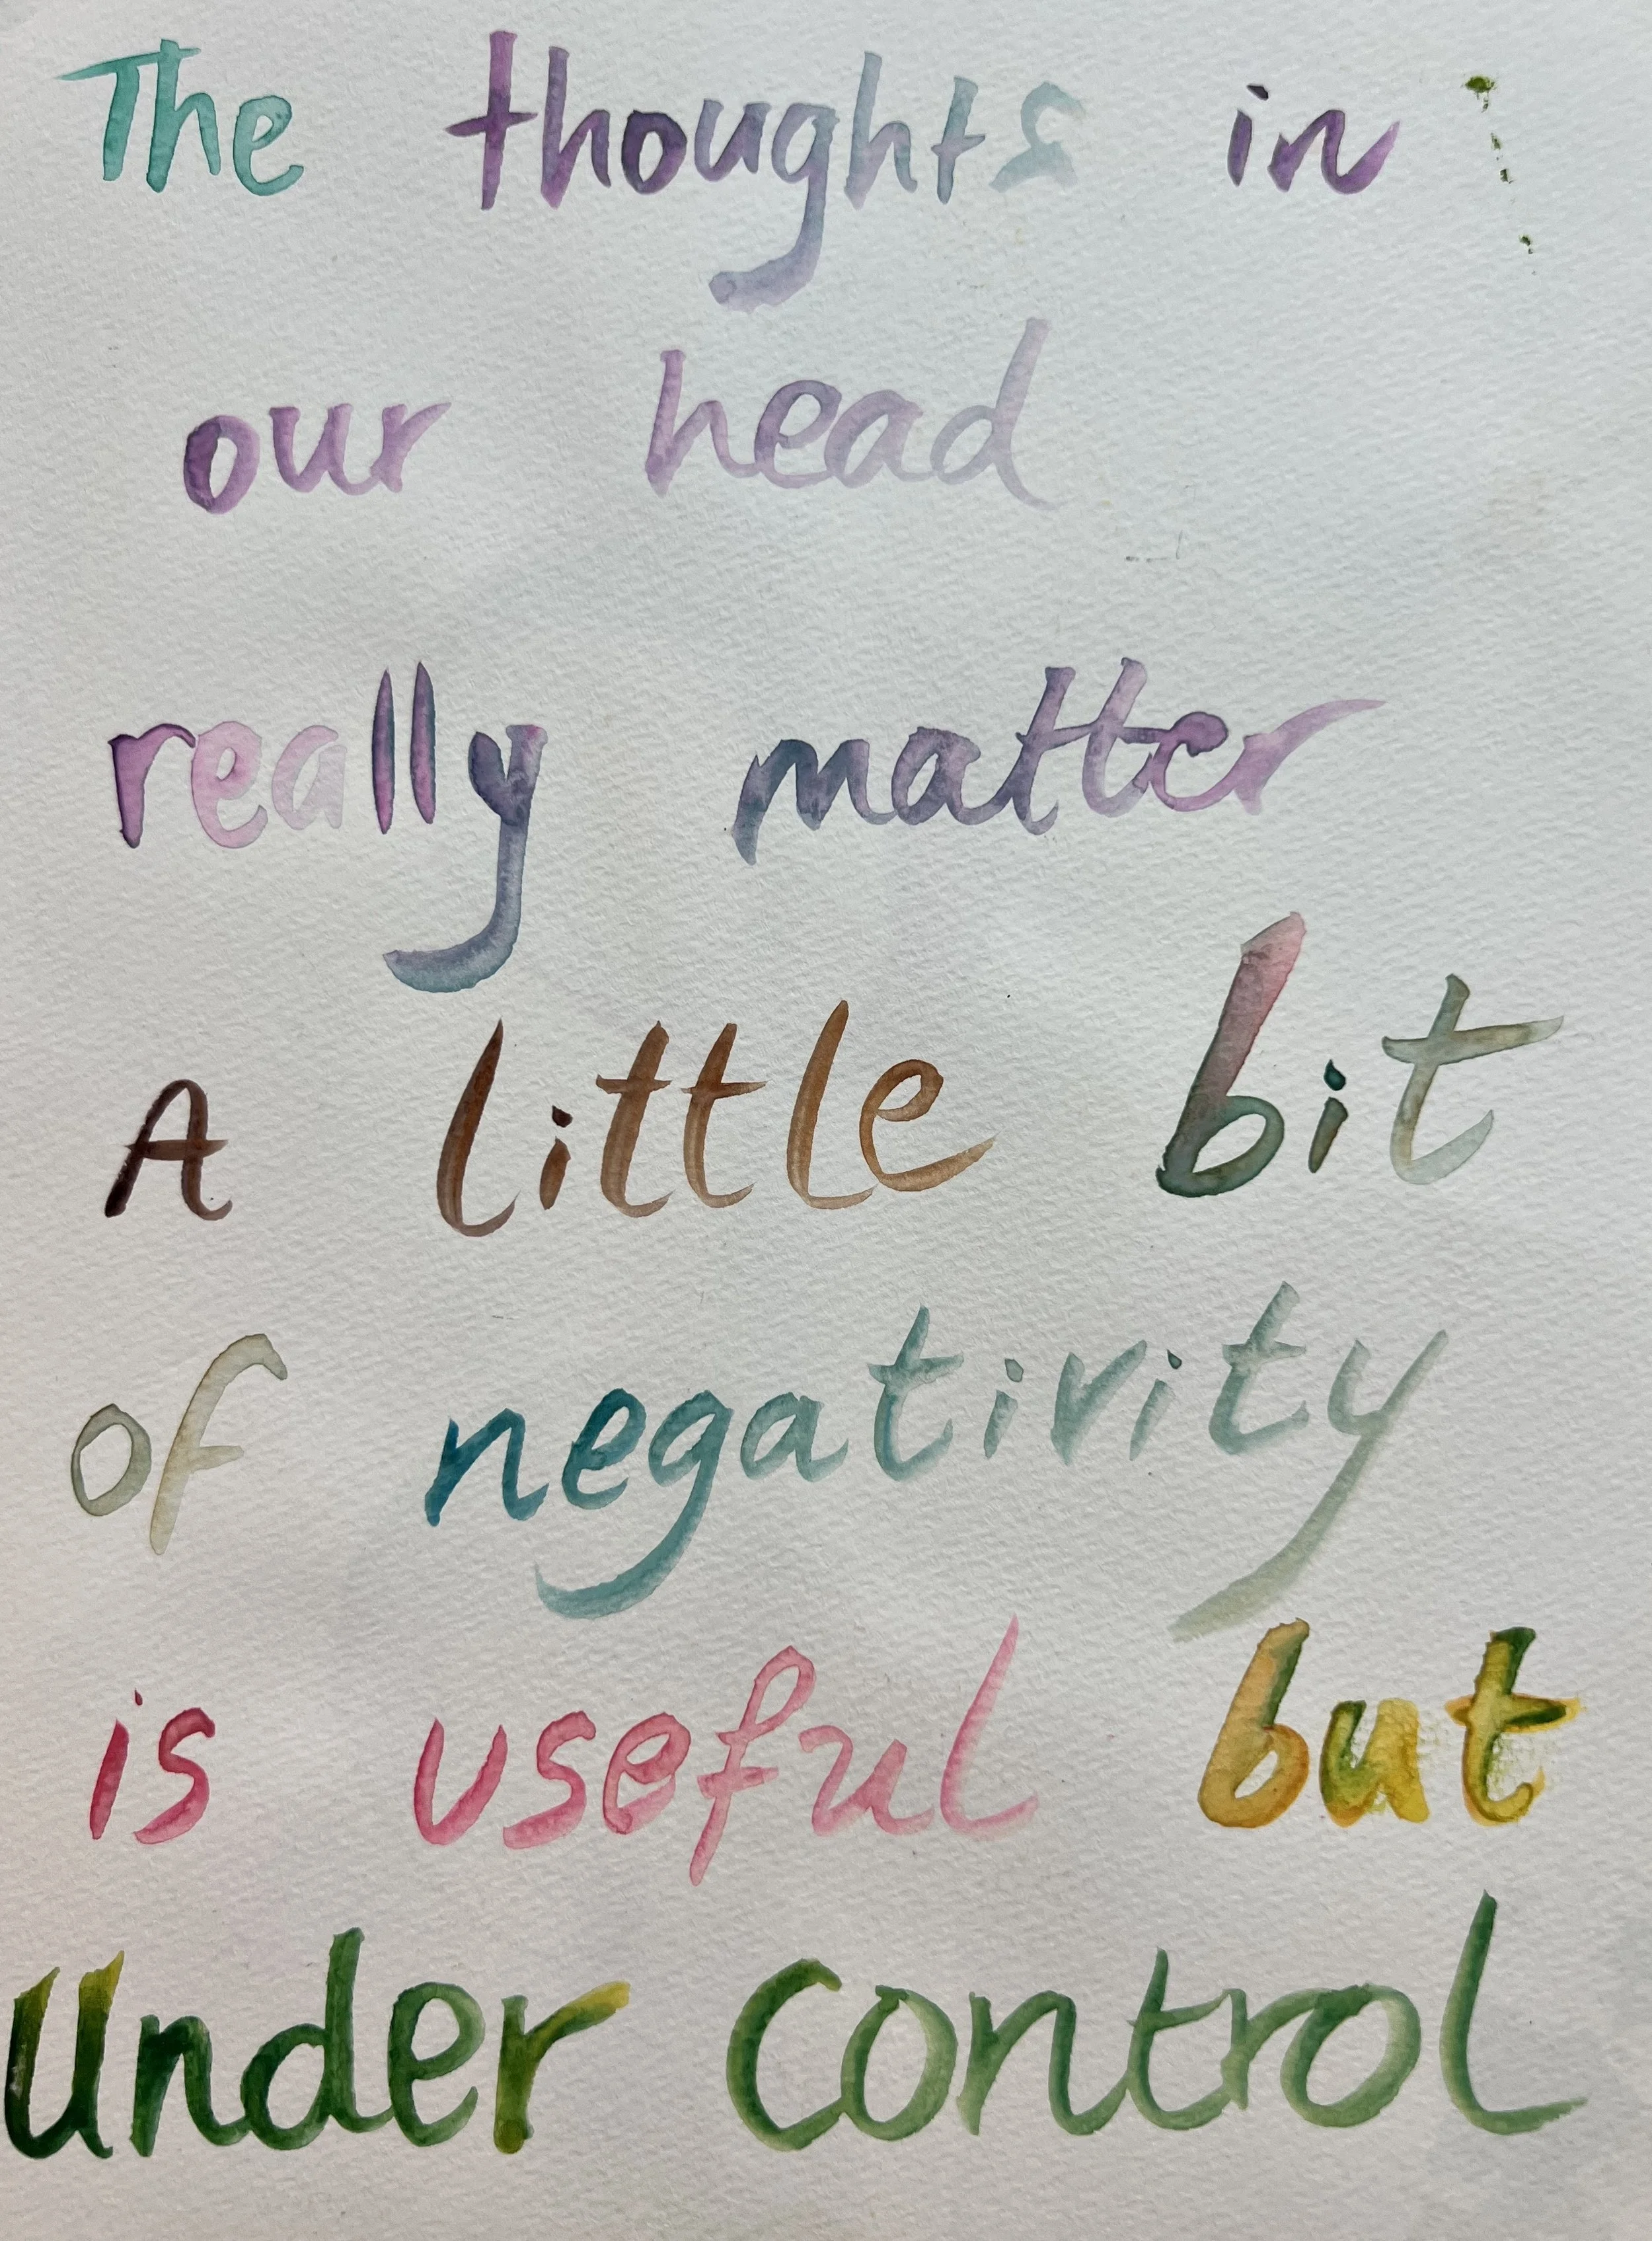 The thoughts in
our head
really matter
A little bit
of negativity
is useful but
Under Control